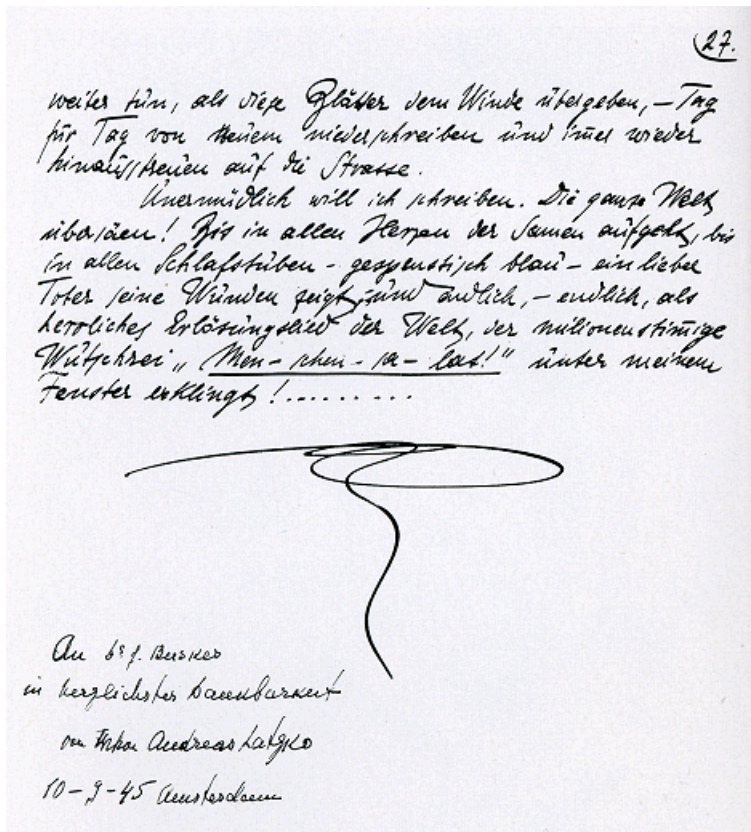 27.
weiter tun, als diese Blätter dem Winde übergeben, – Tag
für Tag von neuem niederschreiben und immer wieder
hinausstreuen auf die Strasse.
Unermüdlich will ich schreiben. Die ganze Welt
übersäen! Bis in allen Herzen der Samen aufgeht, bis
in allen Schlafstuben – gespenstisch blau – ein lieber
Toter seine Wunden zeigt, und endlich, – endlich, als
herrliches Erlösungslied der Welt, der millionenstimmige
Wutschrei „ Men – schen – sa – lat!" unter meinem
Fenster erklingt!.........
An
in herzlichster Dankbarkeit
von Andreas Latzko
10–9–45 Amsterdam